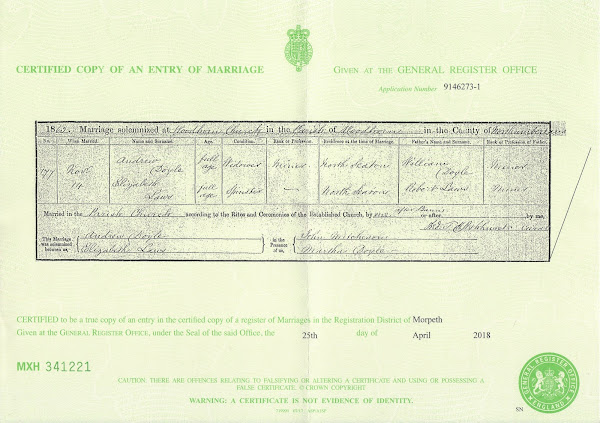 CERTIFIED COPY OF AN ENTRY OF MARRIAGE
GIVEN AT THE GENERAL REGISTER OFFICE
Application Number 9146273-1
Marriage solemnized at Woodhorn Church in the Parish of Woodhorn in the County of Northumberland
No. When Married. Name and Surname. Age. Condition. Rank or Profession. Residence at the time of Marriage. Father's Name and Surname. Rank or Profession of Father.
177 Nov 14 Andrew Doyle full age Widower Miner North Seaton William Doyle Miner
Elizabeth Laws full age Spinster — North Seaton Robert Laws Miner
Married in the Parish Church according to the Rites and Ceremonies of the Established Church, by or after after Banns by me,
This Marriage was solemnized between us, Andrew Doyle Elizabeth Laws in the Presence of us, John Mitcheson Martha Doyle
CERTIFIED to be a true copy of an entry in the certified copy of a register of Marriages in the Registration District of Morpeth
Given at the GENERAL REGISTER OFFICE, under the Seal of the said Office, the 25th day of April 2018
MXH 341221
CAUTION: THERE ARE OFFENCES RELATING TO FALSIFYING OR ALTERING A CERTIFICATE AND USING OR POSSESSING A
FALSE CERTIFICATE. © CROWN COPYRIGHT
WARNING: A CERTIFICATE IS NOT EVIDENCE OF IDENTITY.
GENERAL REGISTER OFFICE
ENGLAND
SN